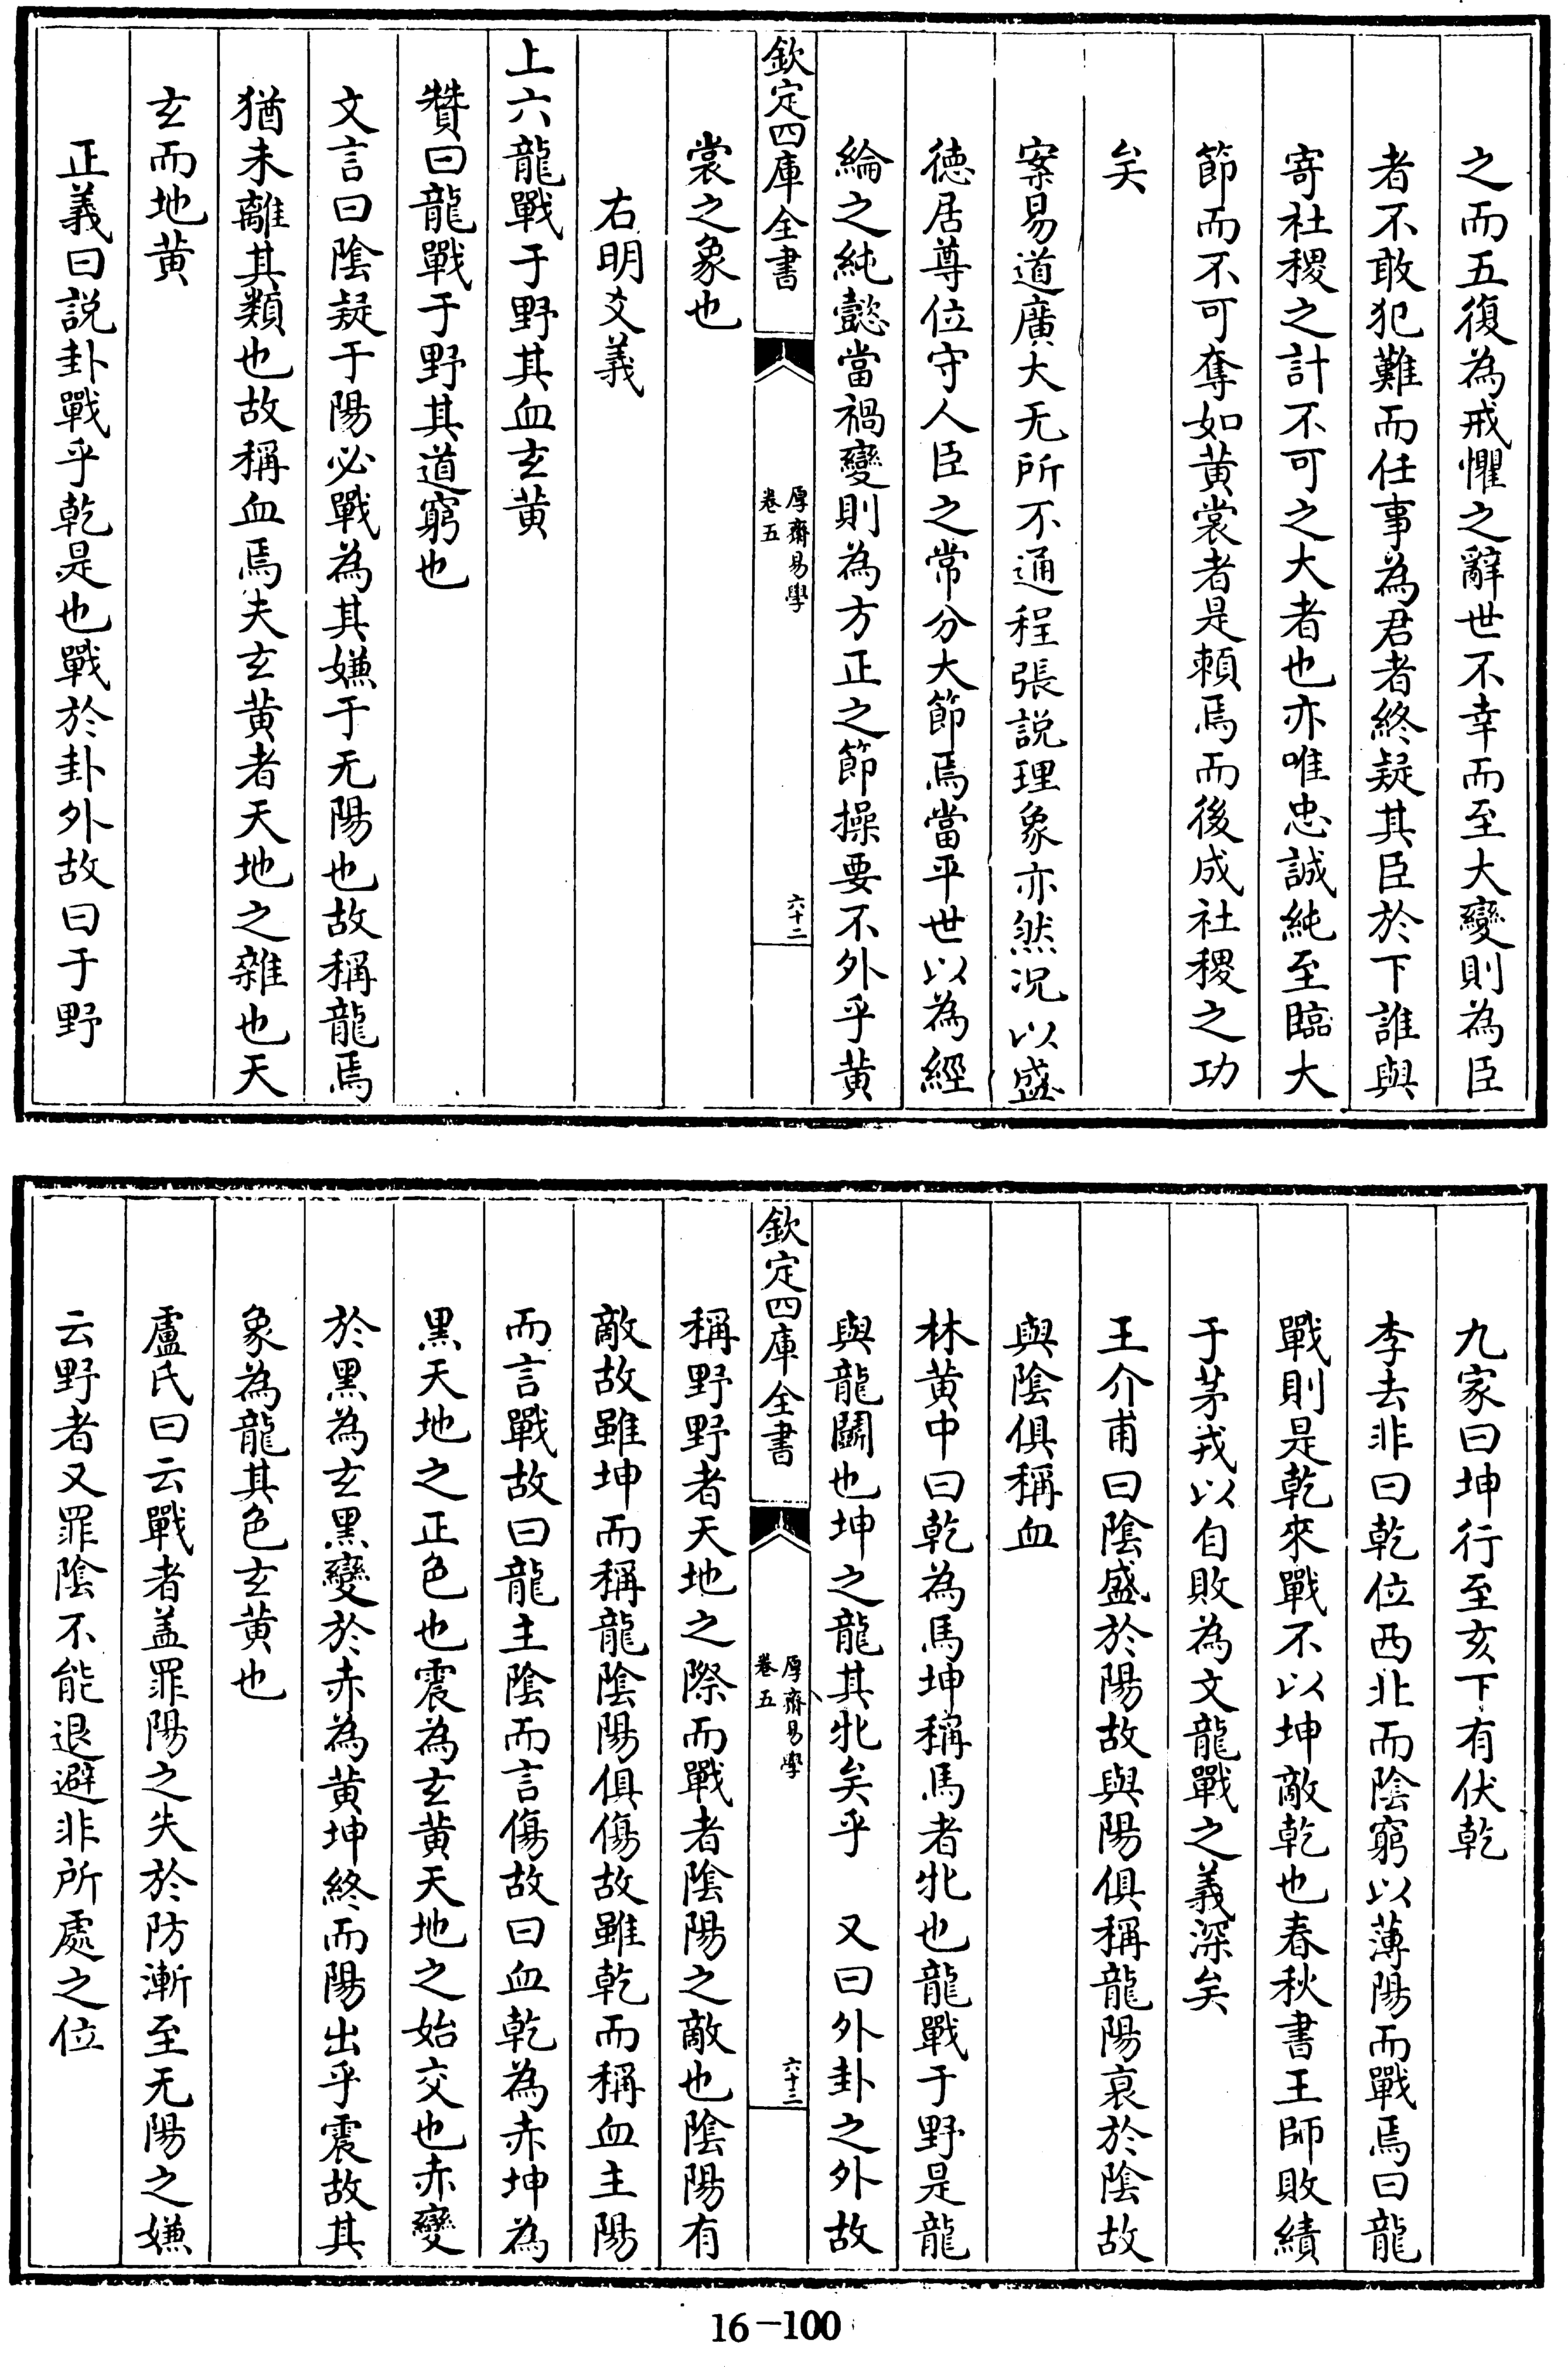 之而五復為戒懼之辭世不幸而至大變則為臣
者不敢犯難而任事為君者終疑其臣於下誰與
寄社稷之計不可之大者也亦唯忠誠純至臨大
節而不可奪如黄裳者是頼焉而後成社稷之功
矣
案易道廣大无所不通程張説理象亦然况以盛
徳居尊位守人臣之常分大節焉當平世以為經
綸之純懿當禍變則為方正之節操要不外乎黄
欽定四庫全書
厚齋易學
卷五
六十二
裳之象也
右明爻義
上六龍戰于野其血玄黄
贊曰龍戰于野其道窮也
文言曰陰疑于陽必戰為其嫌于无陽也故稱龍焉
猶未離其類也故稱血焉夫玄黄者天地之雜也天
玄而地黄
正義曰説卦戰乎乾是也戰於卦外故曰于野
九家曰坤行至亥下有伏乾
李去非曰乾位西北而陰窮以薄陽而戰焉曰龍
戰則是乾來戰不以坤敵乾也春秋書王師敗績
于茅戎以自敗為文龍戰之義深矣
王介甫曰陰盛於陽故與陽俱稱龍陽衰於陰故
與陰俱稱血
林黄中曰乾為馬坤稱馬者牝也龍戰于野是龍
與龍鬭也坤之龍其牝矣乎 又曰外卦之外故
欽定四庫全書
厚齋易學
卷五
六十三
稱野野者天地之際而戰者陰陽之敵也陰陽有
敵故雖坤而稱龍陰陽俱傷故雖乾而稱血主陽
而言戰故曰龍主陰而言傷故曰血乾為赤坤為
黑天地之正色也震為玄黄天地之始交也赤變
於黑為玄黑變於赤為黄坤終而陽出乎震故其
象為龍其色玄黄也
盧氏曰云戰者盖罪陽之失於防漸至无陽之嫌
云野者又罪陰不能退避非所處之位
16-100